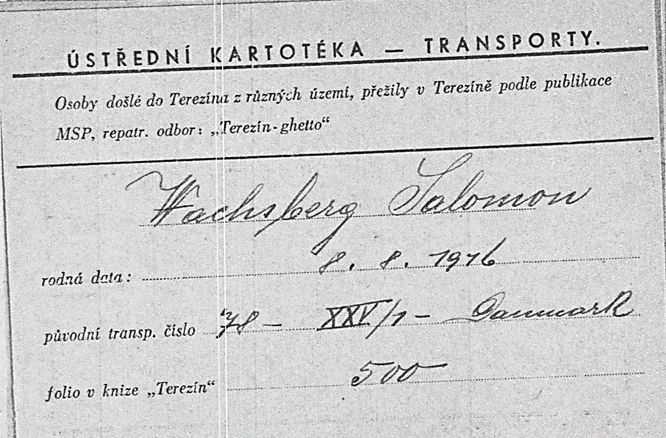 ÚSTŘEDNÍ KARTOTÉKA — TRANSPORTY.
Osoby došlé do Terezína z různých území, přežily v Terezíně podle publikace
MSP, repatr. odbor: „Terezín-ghetto“
Wachsberg Salomon
rodná data: 8. 8. 1916
původní transp. číslo 78 — XXV/1 — Danmark
folio v knize „Terezín“ 500